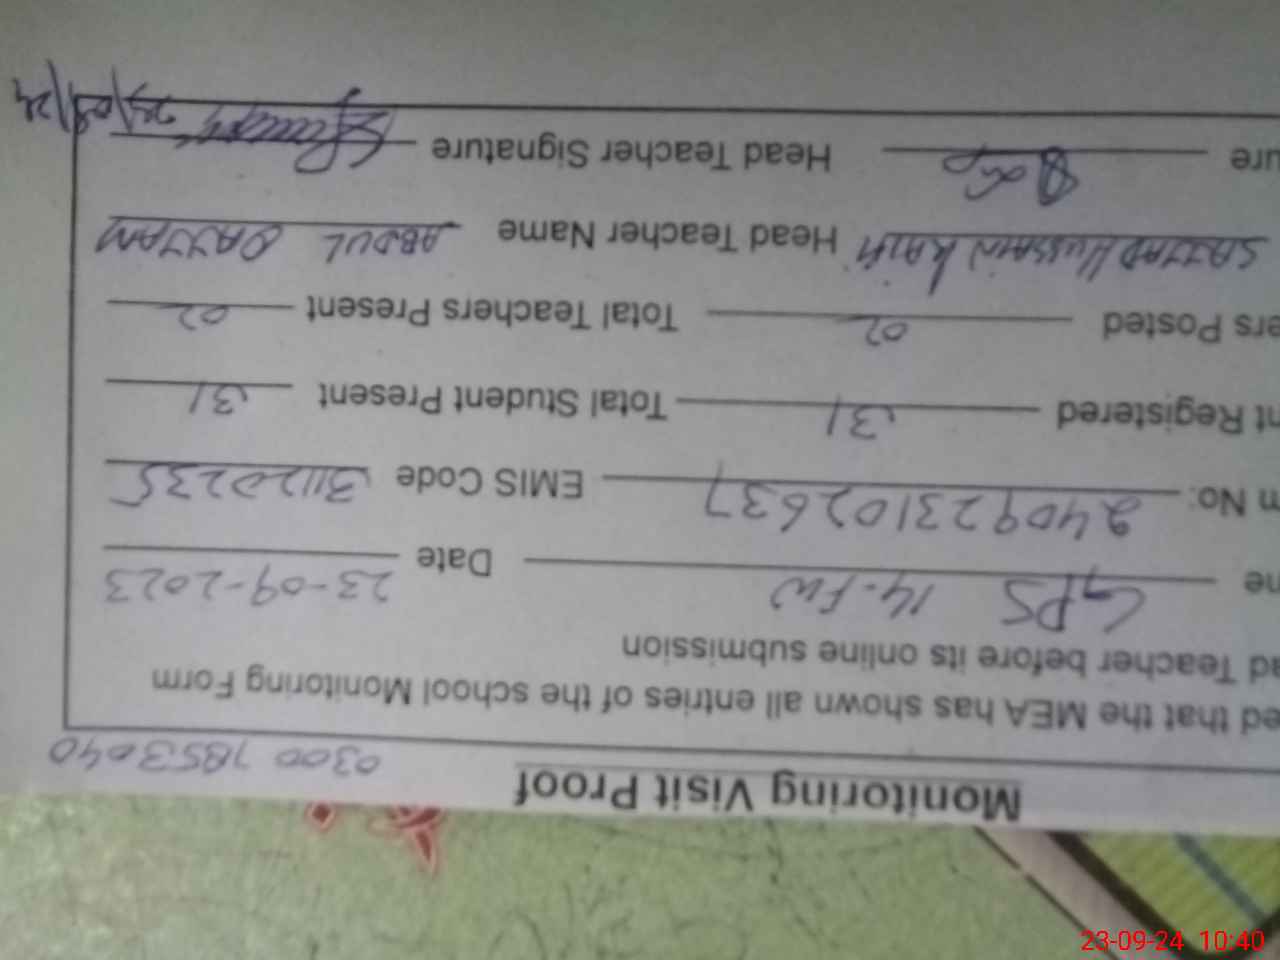 Monitoring Visit Proof 0300 7853040
ed that the MEA has shown all entries of the school Monitoring Form
ad Teacher before its online submission
ne GPS 14-FW Date 23-09-2023
m No: 240923102637 EMIS Code 31120235
nt Registered 31 Total Student Present 31
ers Posted 02 Total Teachers Present 02
SAJJAD HUSSAIN Head Teacher Name ABDUL QAYYAM
ure Head Teacher Signature 23/09/24
23-09-24 10:40